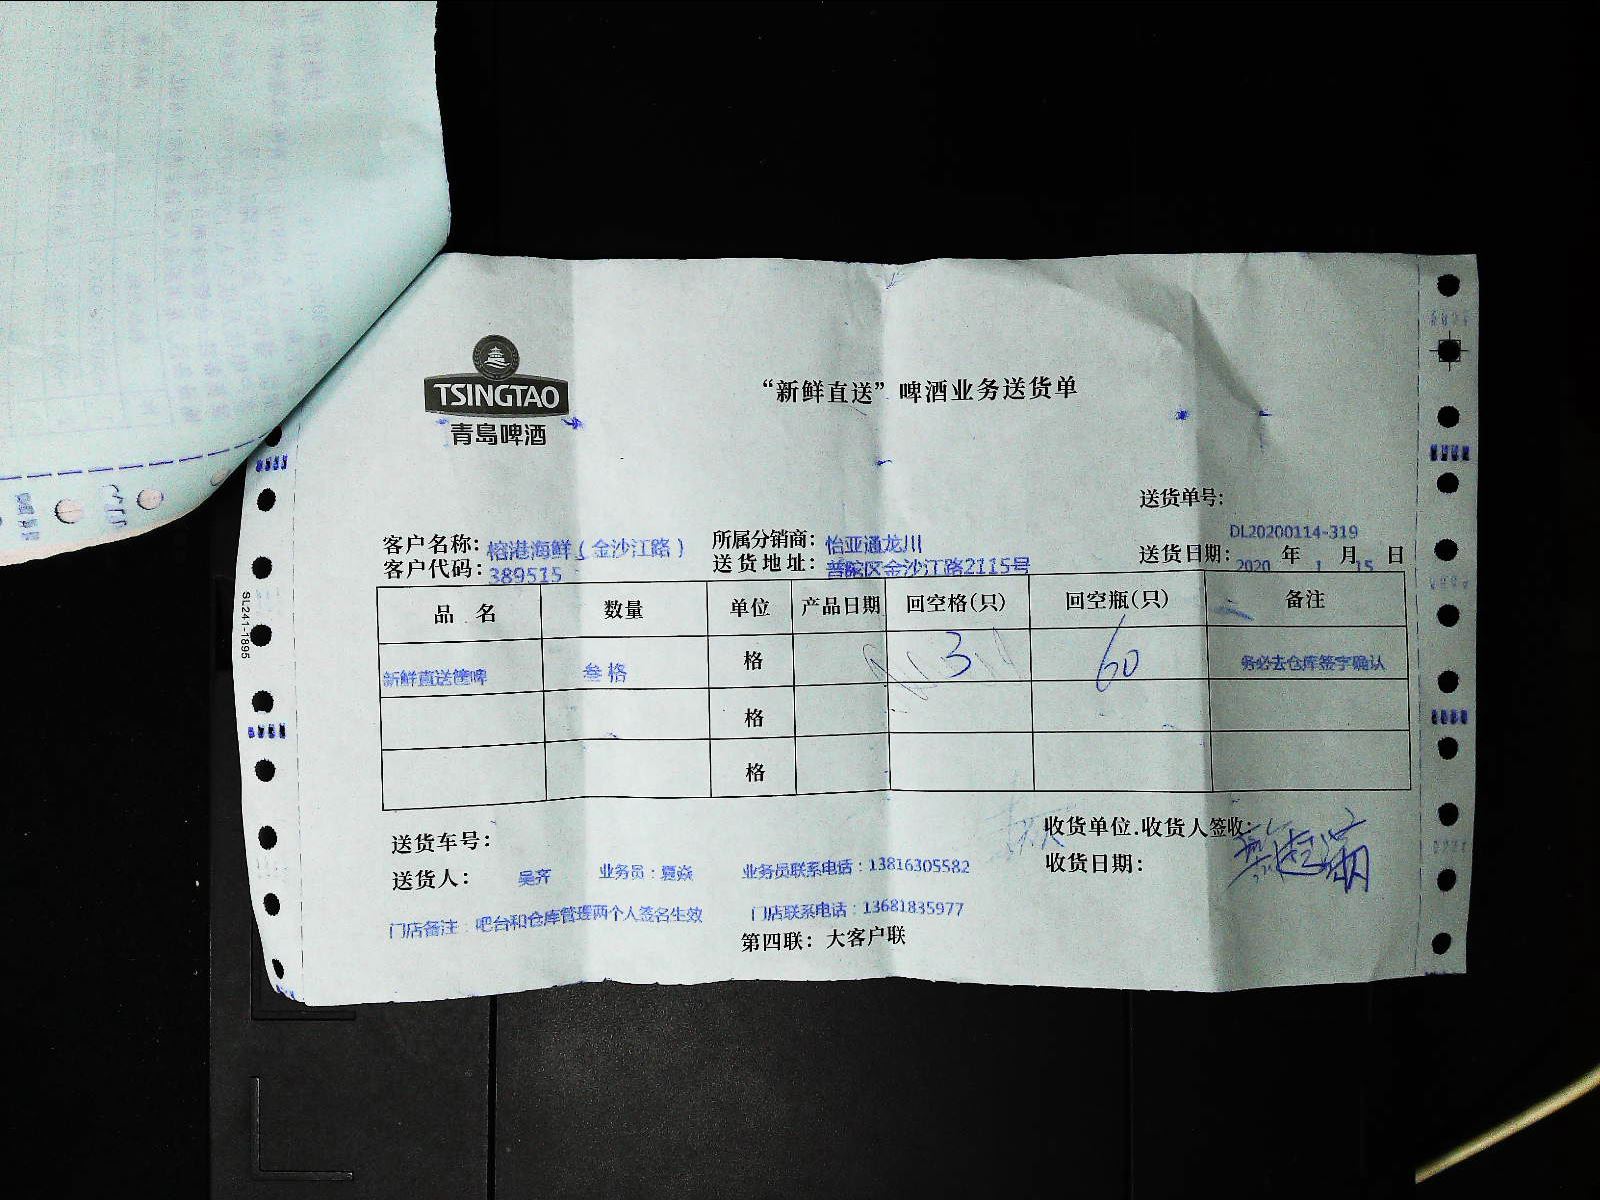 TSINGTAO
青岛啤酒
“新鲜直送”啤酒业务送货单
送货单号:
DL20200114-319
客户名称: 榕港海鲜(金沙江路) 所属分销商: 怡亚通龙川
客户代码: 389515 送货地址: 普陀区金沙江路2115号 送货日期: 2020 年 1 月 15 日
品 名 数量 单位 产品日期 回空格(只) 回空瓶(只) 备注
新鲜直送箧啤 叁格 格 3 60 务必去仓库签字确认
格
格
送货车号: 收货单位.收货人签收:
送货人: 吴齐 业务员:夏焱 业务员联系电话:13816305582 收货日期:
门店备注:吧台和仓库管理两个人签名生效 门店联系电话:13681835977
第四联: 大客户联
SL241-1895